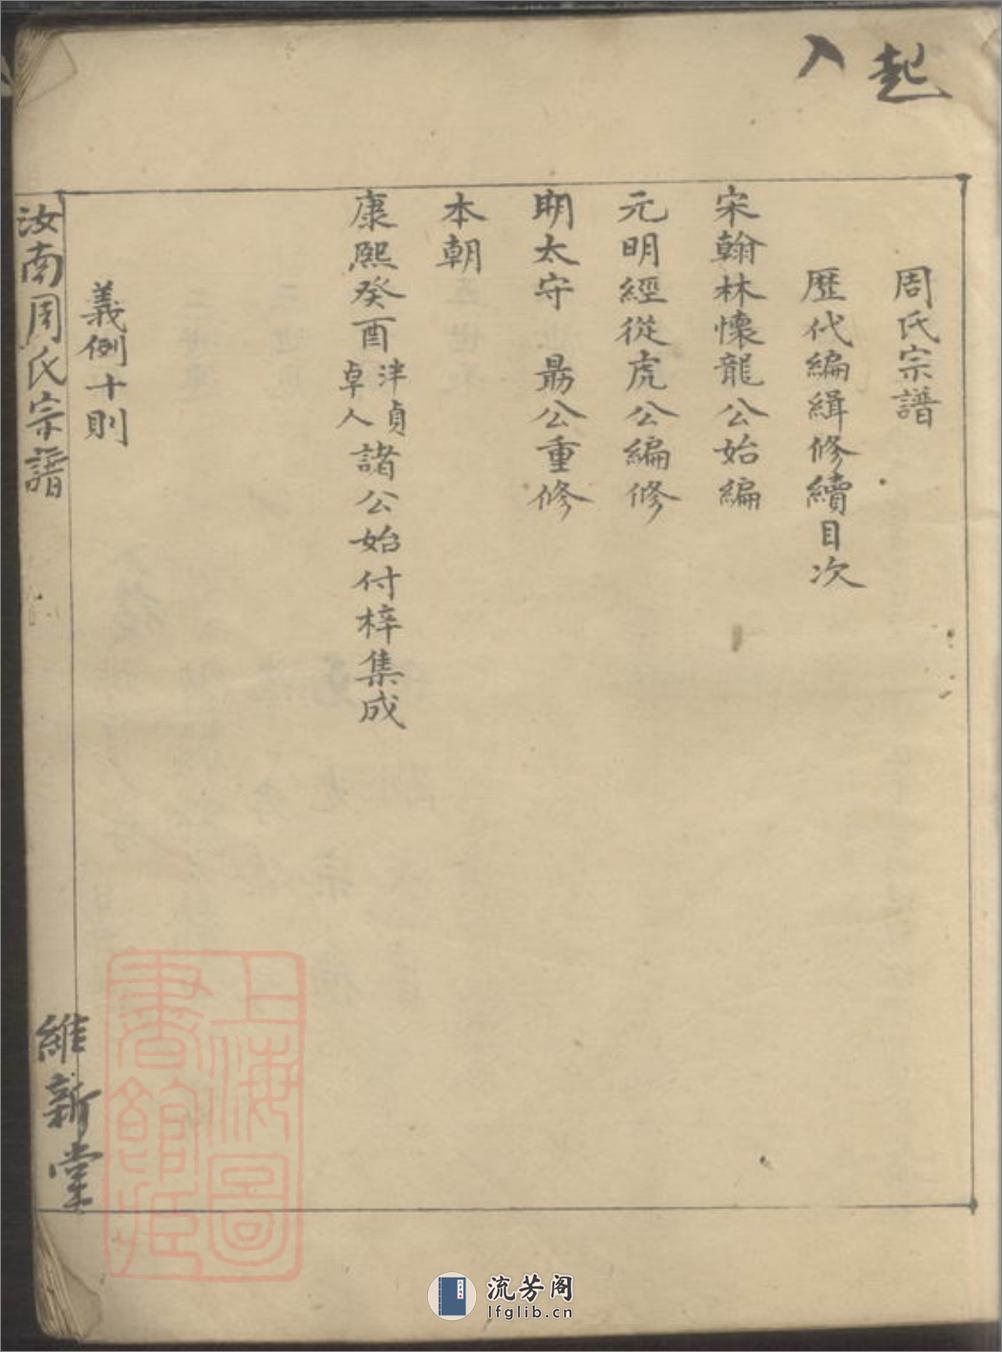 起
入
周氏宗譜
歷代編緝修續目次
宋翰林懷龍公始編
元明經從虎公編修
明太守 勗公重修
本朝
康熙癸酉津貞卓人諸公始付梓集成
義例十則
汝南周氏宗譜
維新堂
上海圖書館藏
流芳阁
lfglib.cn